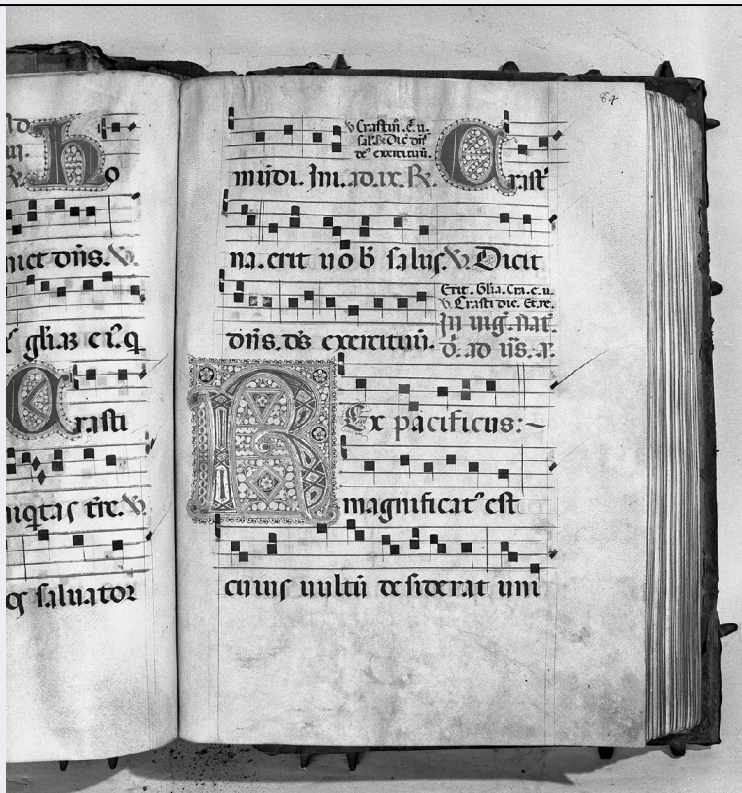 ho
nict dñs. V.
gl'ia
Crasti
iniq̃tas t̃re. V
saluator
84
V Crastiñ. E. u.
sal. V Dic̃ dñs
ds̃ exercituũ.
mũdi. Im. ad. ix. R. Crast̃
na. erit uob̃ salus. V. Dicit
Erit. Gl̃ia. Cra. e. u.
V. Crasti dic. Et. re.
dñs. ds̃ exercituũ. In uig̃. nat̃.
d. ad ũs. a.
REx pacificus:~
magnificat' est
cuius uultũ desiderat uni